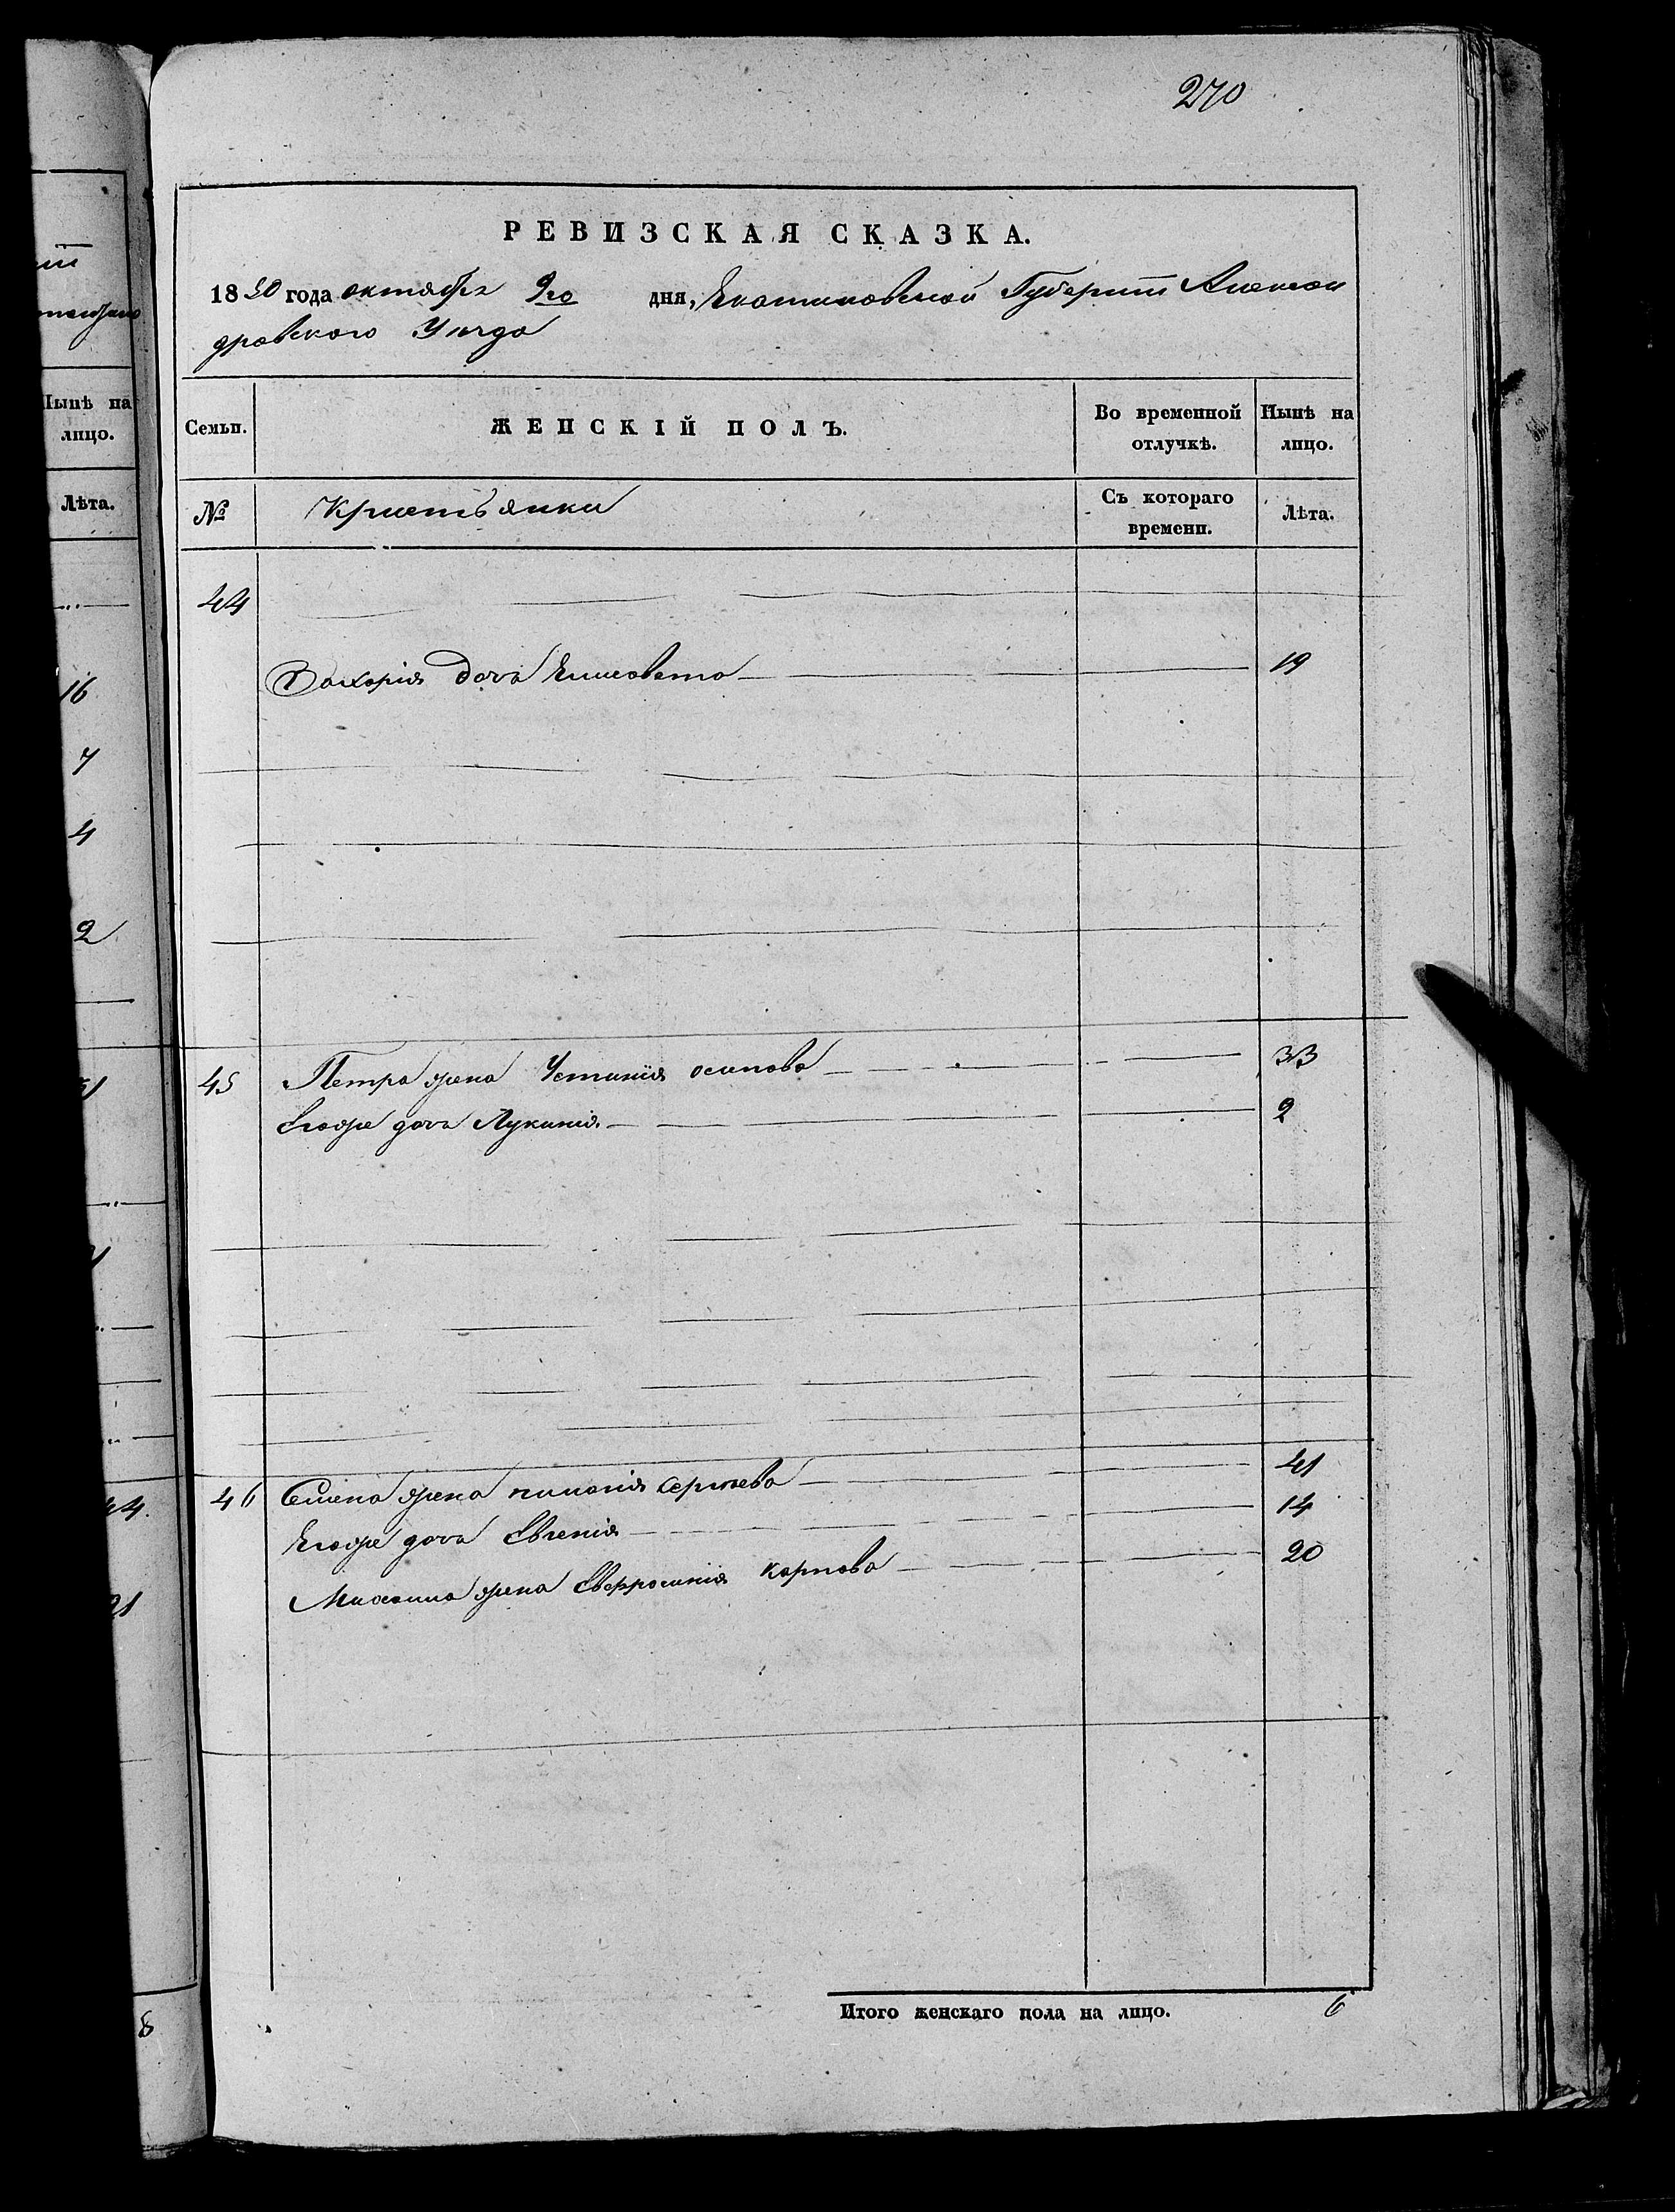 270
РЕВИЗСКАЯ СКАЗКА.
1850 года октября 9го дня, Екатиновской Губернии Александ
дровского Уезда
Семьи. ЖЕНСКІЙ ПОЛЪ. Во временной отлучкѣ. Нынѣ на лицо.
№ Кристьянки Съ котораго времени. Лѣта.
44
Захарія дочь Елисовета 19
45 Петра жена Устинія осипова 33
Егоже дочь Лукинія 2
46 Семена жена Сергѣева 41
Егоже дочь Евгенія 14
Михаила жена Евфросинія карпова 20
Итого женскаго пола на лицо. 6
Нынѣ на
лицо.
Лѣта.
16
7
4
2
44
21
8